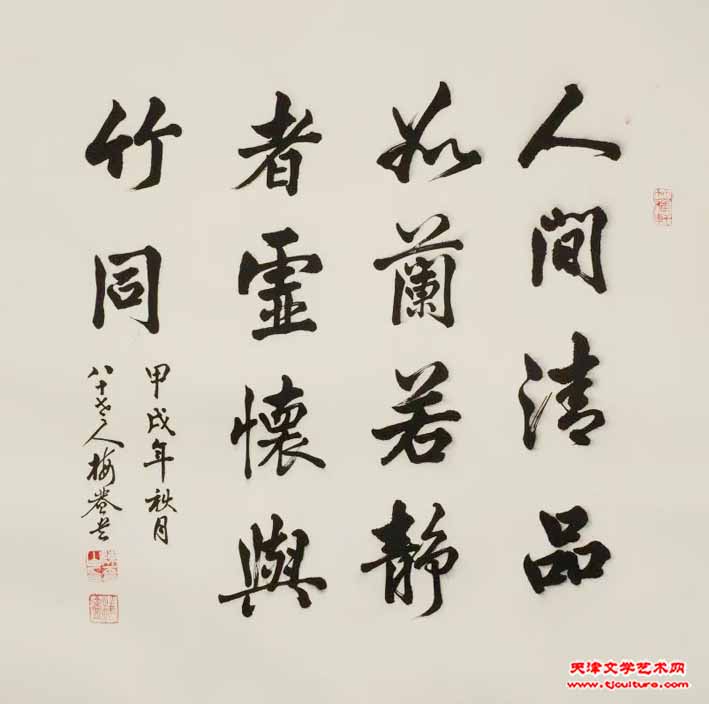 人間清品
如蘭若静
者虛懷與
竹同
甲戌年秋月
八十老人梅
天津文学艺术网
www.tjculture.com